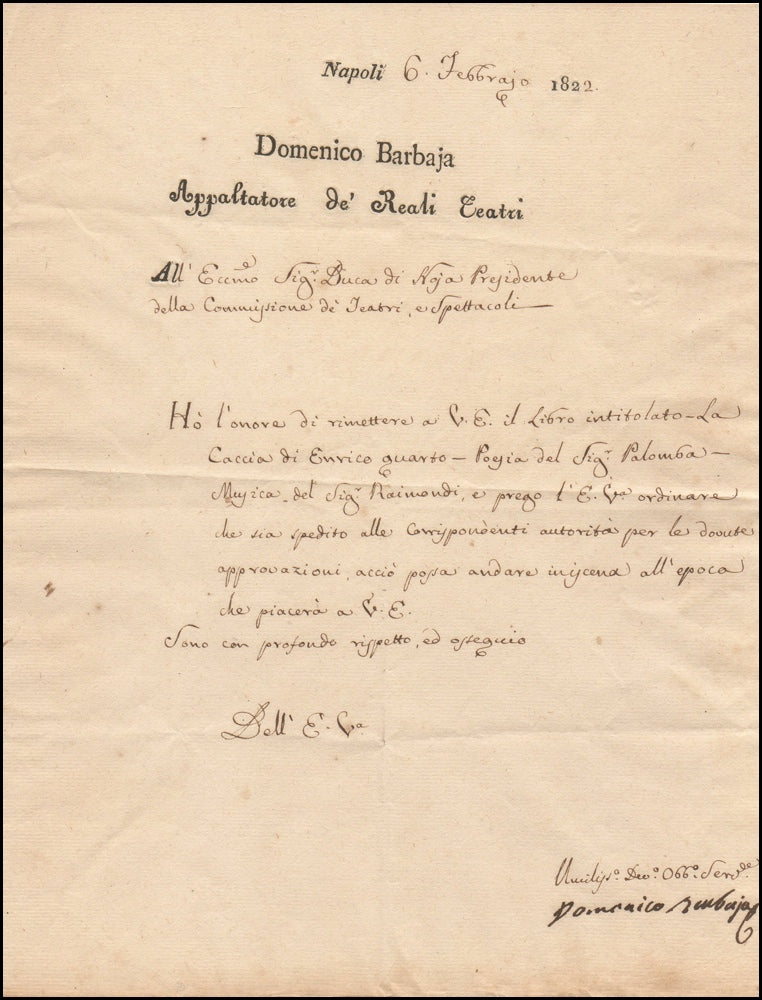 Napoli 6. Febbrajo 1822.
Domenico Barbaja
Appaltatore de' Reali Teatri
All' Eccmo Sigr. Duca di Noja Presidente
della Commissione de' Teatri, e Spettacoli
Hò l'onore di rimettere a V.E. il Libro intitolato - La
Caccia di Enrico quarto - Poesia del Sigr. Palomba -
Musica del Sigr. Raimondi, e prego l'E.Va ordinare
che sia spedito alle corrispondenti autorità per le dovute
approvazioni, acciò possa andare in iscena all'epoca
che piacerà a V.E.
Sono con profondo rispetto, ed ossequio
Dell' E.Va
Umiliso. Devo. Obbo. Servde.
Domenico Barbaja